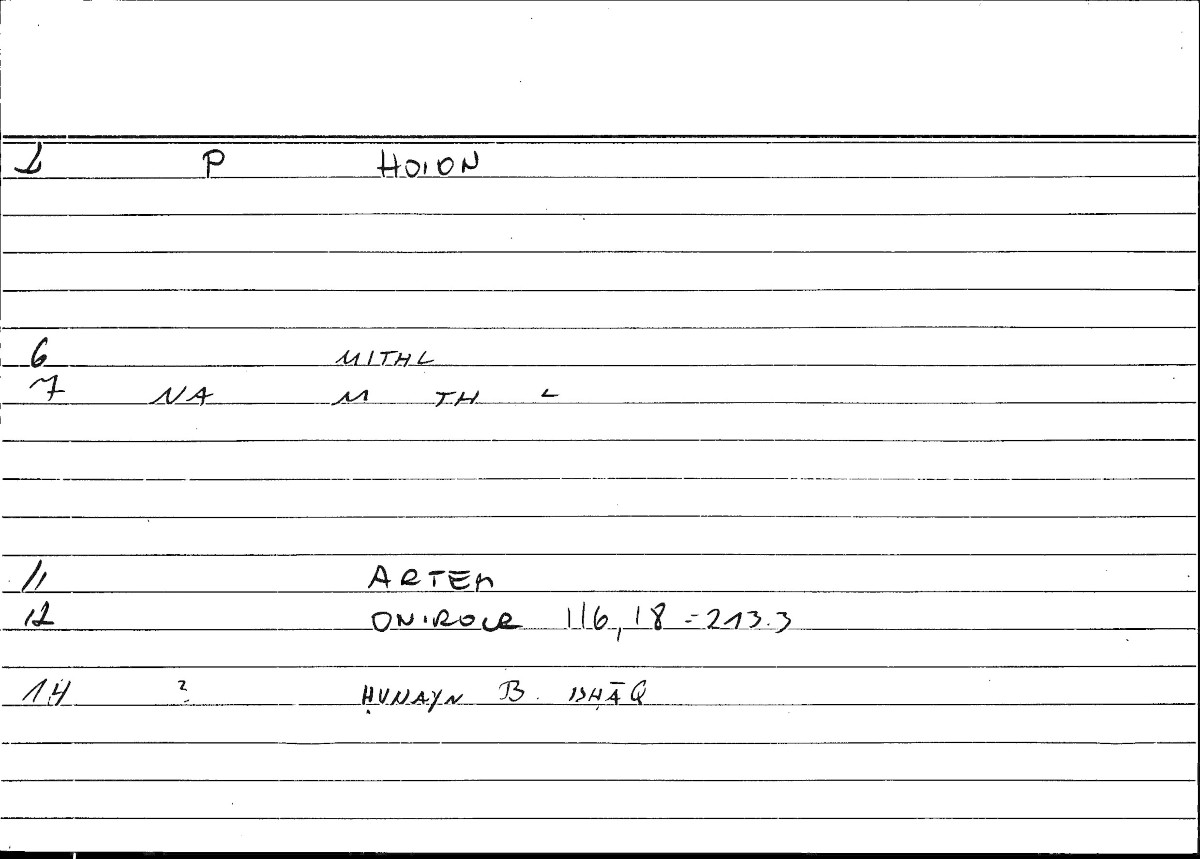 1 P HOION
6 MITHL
7 NA M TH L
11 ARTEM
12 ONIROCR 116,18 = 213.3
14 ? ḤUNAYN B. ISḤĀQ